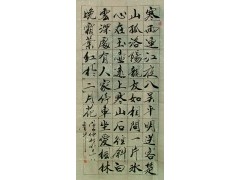 寒雨連江夜入吴平明送客楚
山孤洛陽親友如相問一片冰
心在玉壺遠上寒山石徑斜白
雲深處有人家停車坐愛楓林
晚霜葉紅於二月花